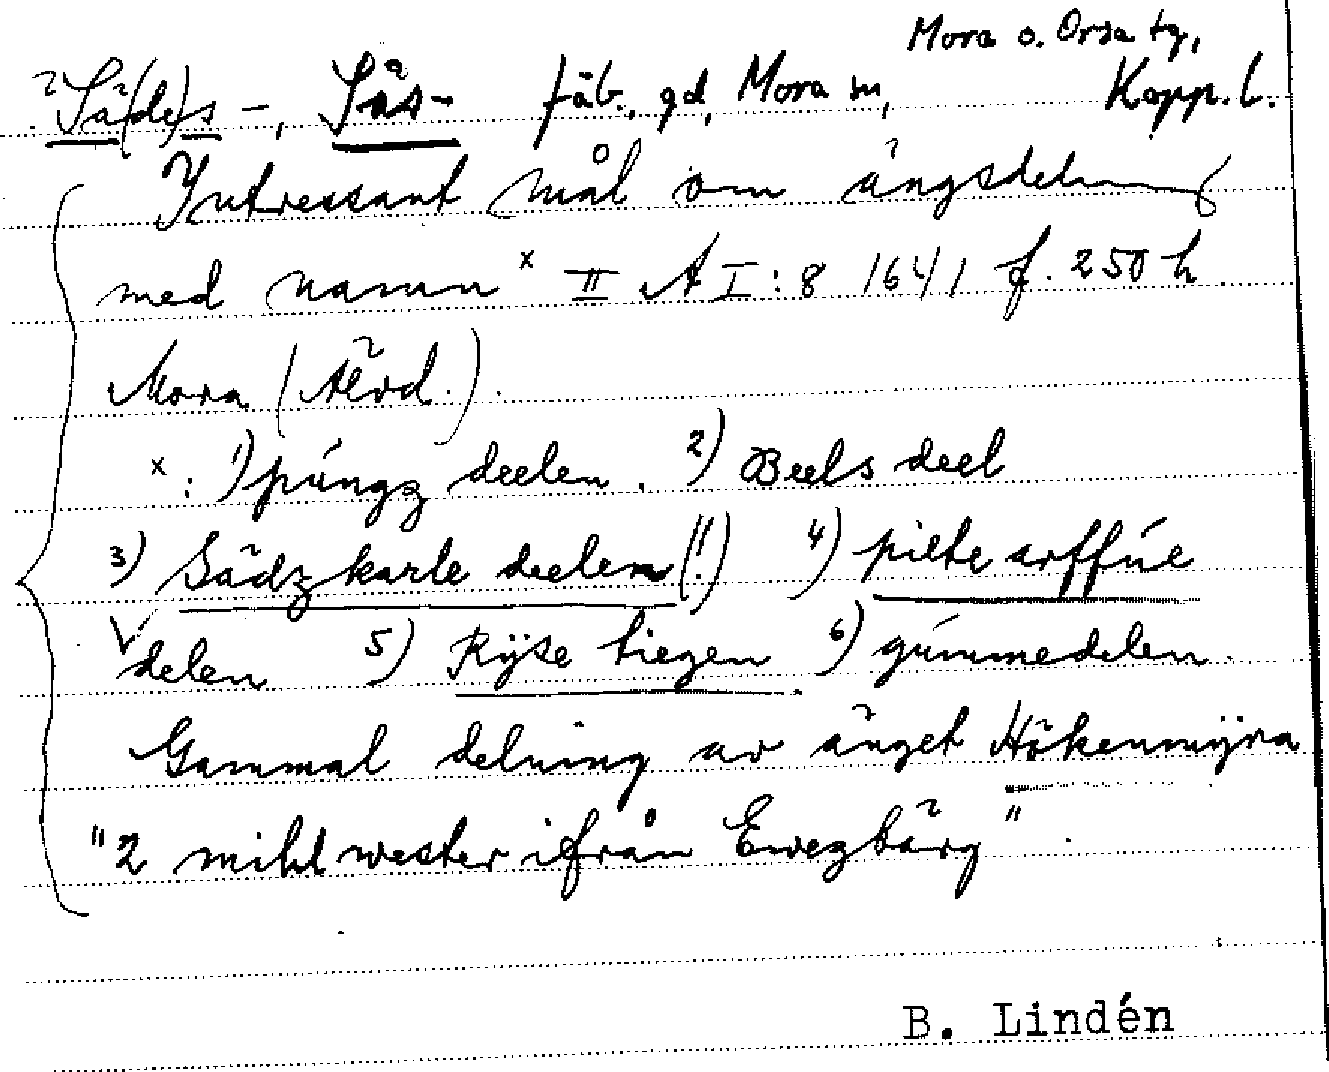 Mora o. Orsa tg,
Sä(de)s -, Sås- fäb., gd, Mora sn, Kopp. l.
Intressant mål om ängsdelning
med namn x II A I: 8 1641 f. 250 h
Mora (Älvd.).
x: 1) púngz deelen. 2) Beels deel
3) Sädzkarle deelen (!!) 4) pilte arffúe
delen 5) Rÿse tiegen 6) gúmmedelen.
Gammal delning av änget Hökenmÿra
"2 mihl wester ifrån Ewezbärg".
B. Lindén